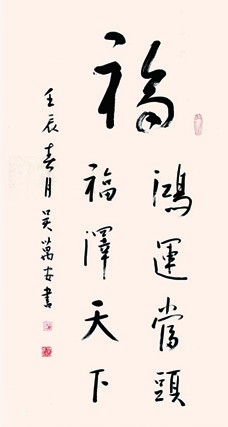 福
鴻運當頭
福澤天下
壬辰春月吳萬安書